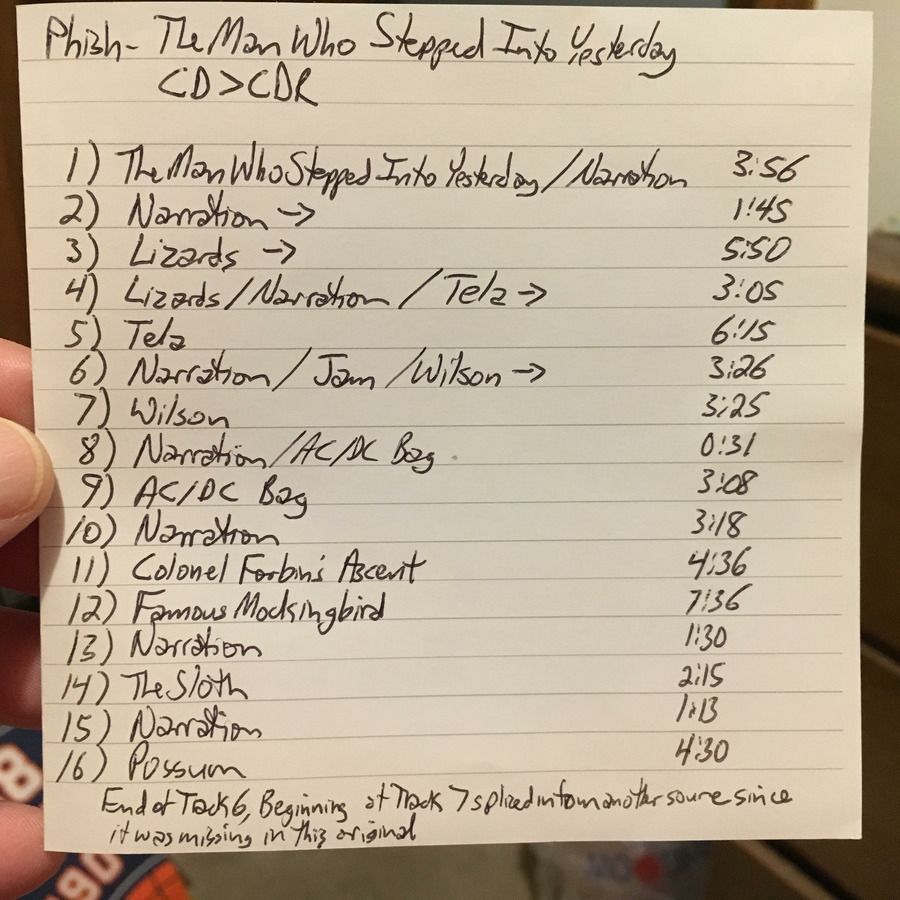 Phish - The Man Who Stepped Into Yesterday
CD > CDR
1) The Man Who Stepped Into Yesterday / Narration 3:56
2) Narration → 1:45
3) Lizards → 5:50
4) Lizards / Narration / Tela → 3:05
5) Tela 6:15
6) Narration / Jam / Wilson → 3:26
7) Wilson 3:25
8) Narration / AC/DC Bag 0:31
9) AC/DC Bag 3:08
10) Narration 3:18
11) Colonel Forbin's Ascent 4:36
12) Famous Mockingbird 7:36
13) Narration 1:30
14) The Sloth 2:15
15) Narration 1:13
16) Possum 4:30
End of Track 6, Beginning of Track 7 spliced in from another source since
it was missing in this original
8
90